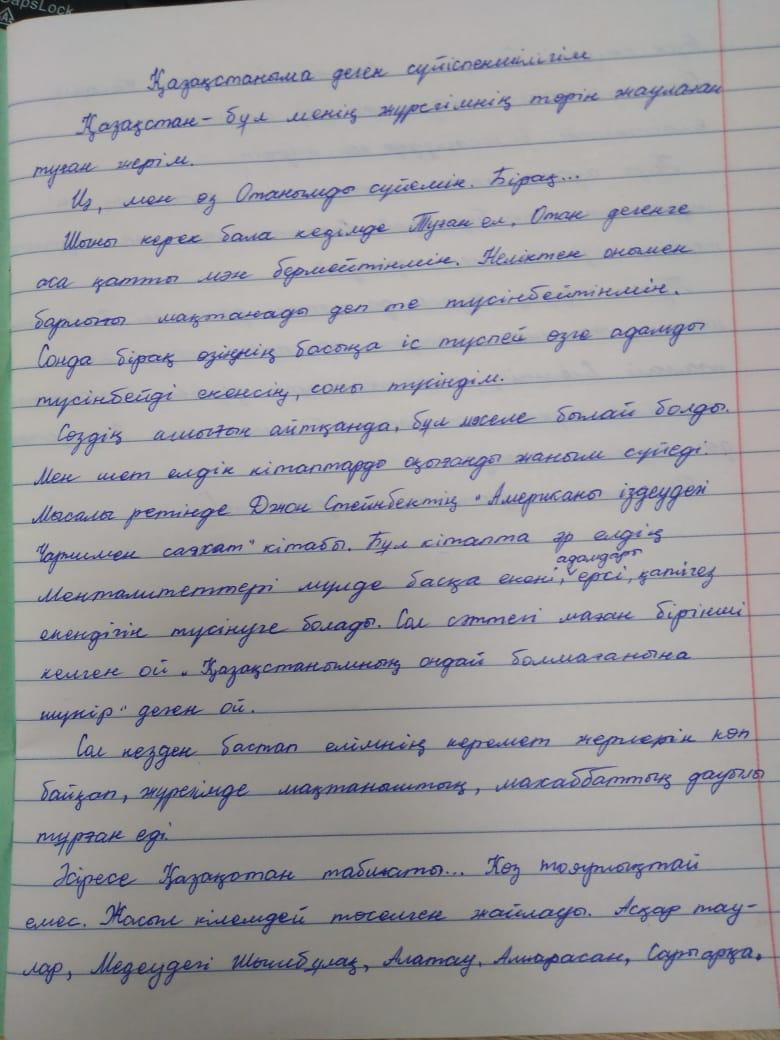 CapsLock
Қазақстаныма деген сүйіспеншілігім
Қазақстан – бұл менің жүрегімнің төрін жаулаған
туған жерім.
Иә, мен өз Отанымды сүйемін. Бірақ...
Шыны керек бала кезімде Туған ел, Отан дегенге
аса қатты мән бермейтінмін. Неліктен онымен
барлығы мақтанады деп те түсінбейтінмін.
Сонда бірақ өзіңнің басыңа іс түспей өзге адамды
түсінбейді екенсің, соны түсіндім.
Сөздің ашығын айтқанда, бұл мәселе былай болды.
Мен шет елдік кітаптарды оқығанды жаным сүйеді.
Мысалы ретінде Джон Стейнбектің "Американы іздеудегі
Чарлимен саяхат" кітабы. Бұл кітапта әр елдің
Менталитеттері мүлде басқа екені, адамдары ерсі, қатігез
екендігін түсінуге болады. Сол сәттегі маған бірінші
келген ой "Қазақстанымның ондай болмағанына
шүкір" деген ой.
Сол кезден бастап елімнің керемет жерлерін көп
байқап, жүрегімде мақтаныштың, махаббаттың дауылы
тұрған еді.
Әсіресе Қазақстан табиғаты... Көз тоярлықтай
емес. Жасыл кілемдей төселген жайлауы. Асқар тау-
лар, Медеудегі Шымбұлақ, Алатау, Алмарасан, Сарыарқа,